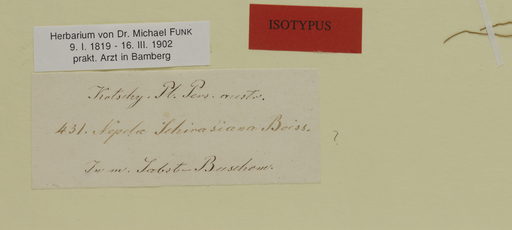 Herbarium von Dr. Michael FUNK
9. I. 1819 - 16. III. 1902
prakt. Arzt in Bamberg
ISOTYPUS
Kotschy. Pl. Pers. austr.
431. Nepeta Schirasiana Boiss.
In m. Sabst-Buschom.
?